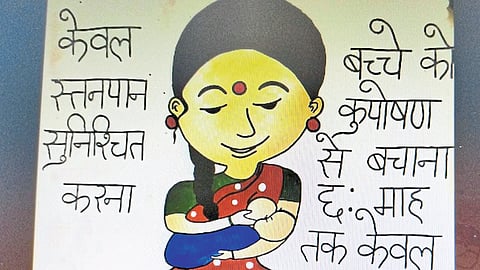 केवल
स्तनपान
सुनिश्चित
करना
बच्चे को
कुपोषण
से बचाना
छ: माह
तक केवल